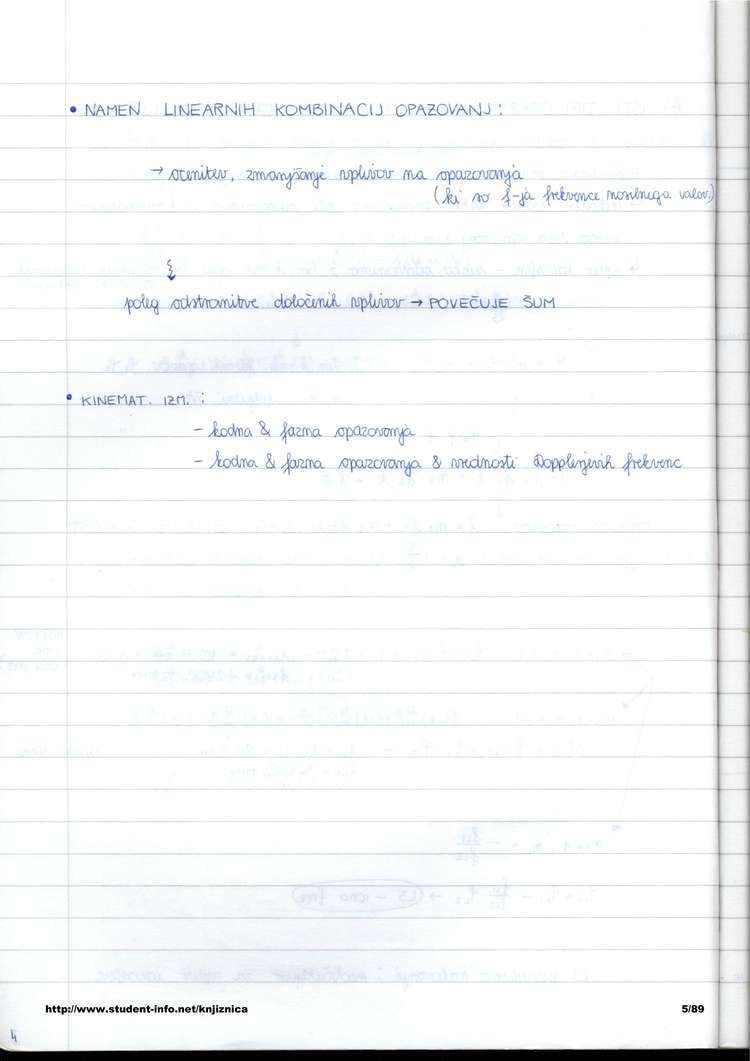 • NAMEN LINEARNIH KOMBINACIJ OPAZOVANJ :
→ ocenitev, zmanjšanje vplivov na opazovanja
(ki so f-ja frekvence nosilnega valov.)
poleg odstranitve določenih vplivov → POVEČUJE ŠUM
• KINEMAT. IZM. :
- kodna & fazna opazovanja
- kodna & fazna opazovanja & vrednosti Dopplerjevih frekvenc
http://www.student-info.net/knjiznica 5/89
4